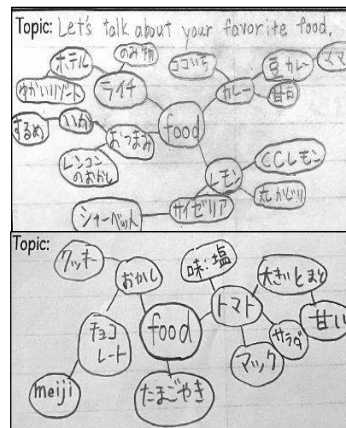 Topic: Let's talk about your favorite food.
ホテル
のみ物
ココいち
豆カレー
ママ
ライチ
カレー
甘口
するめ
いか
おつまみ
food
レンコンのおかし
レモン
CCレモン
丸かじり
シャーベット
サイゼリア
Topic:
クッキー
おかし
味:塩
大きいとまと
food
トマト
甘い
チョコレート
サラダ
マック
meiji
たまごやき